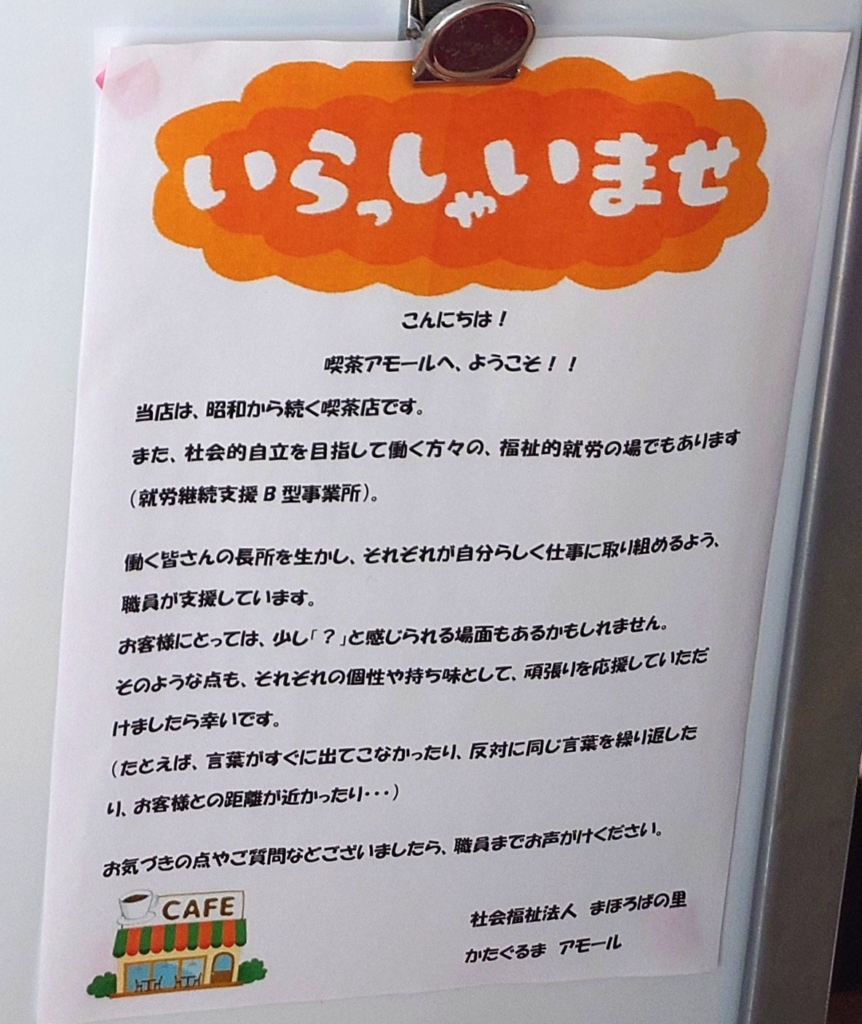 いらっしゃいませ
こんにちは！
喫茶アモールへ、ようこそ！！
当店は、昭和から続く喫茶店です。
また、社会的自立を目指して働く方々の、福祉的就労の場でもあります
（就労継続支援B型事業所）。
働く皆さんの長所を生かし、それぞれが自分らしく仕事に取り組めるよう、
職員が支援しています。
お客様にとっては、少し「？」と感じられる場面もあるかもしれません。
そのような点も、それぞれの個性や持ち味として、頑張りを応援していただ
けましたら幸いです。
（たとえば、言葉がすぐに出てこなかったり、反対に同じ言葉を繰り返した
り、お客様との距離が近かったり・・・）
お気づきの点やご質問などございましたら、職員までお声がけください。
CAFE
社会福祉法人　まほろばの里
かたぐるま　アモール